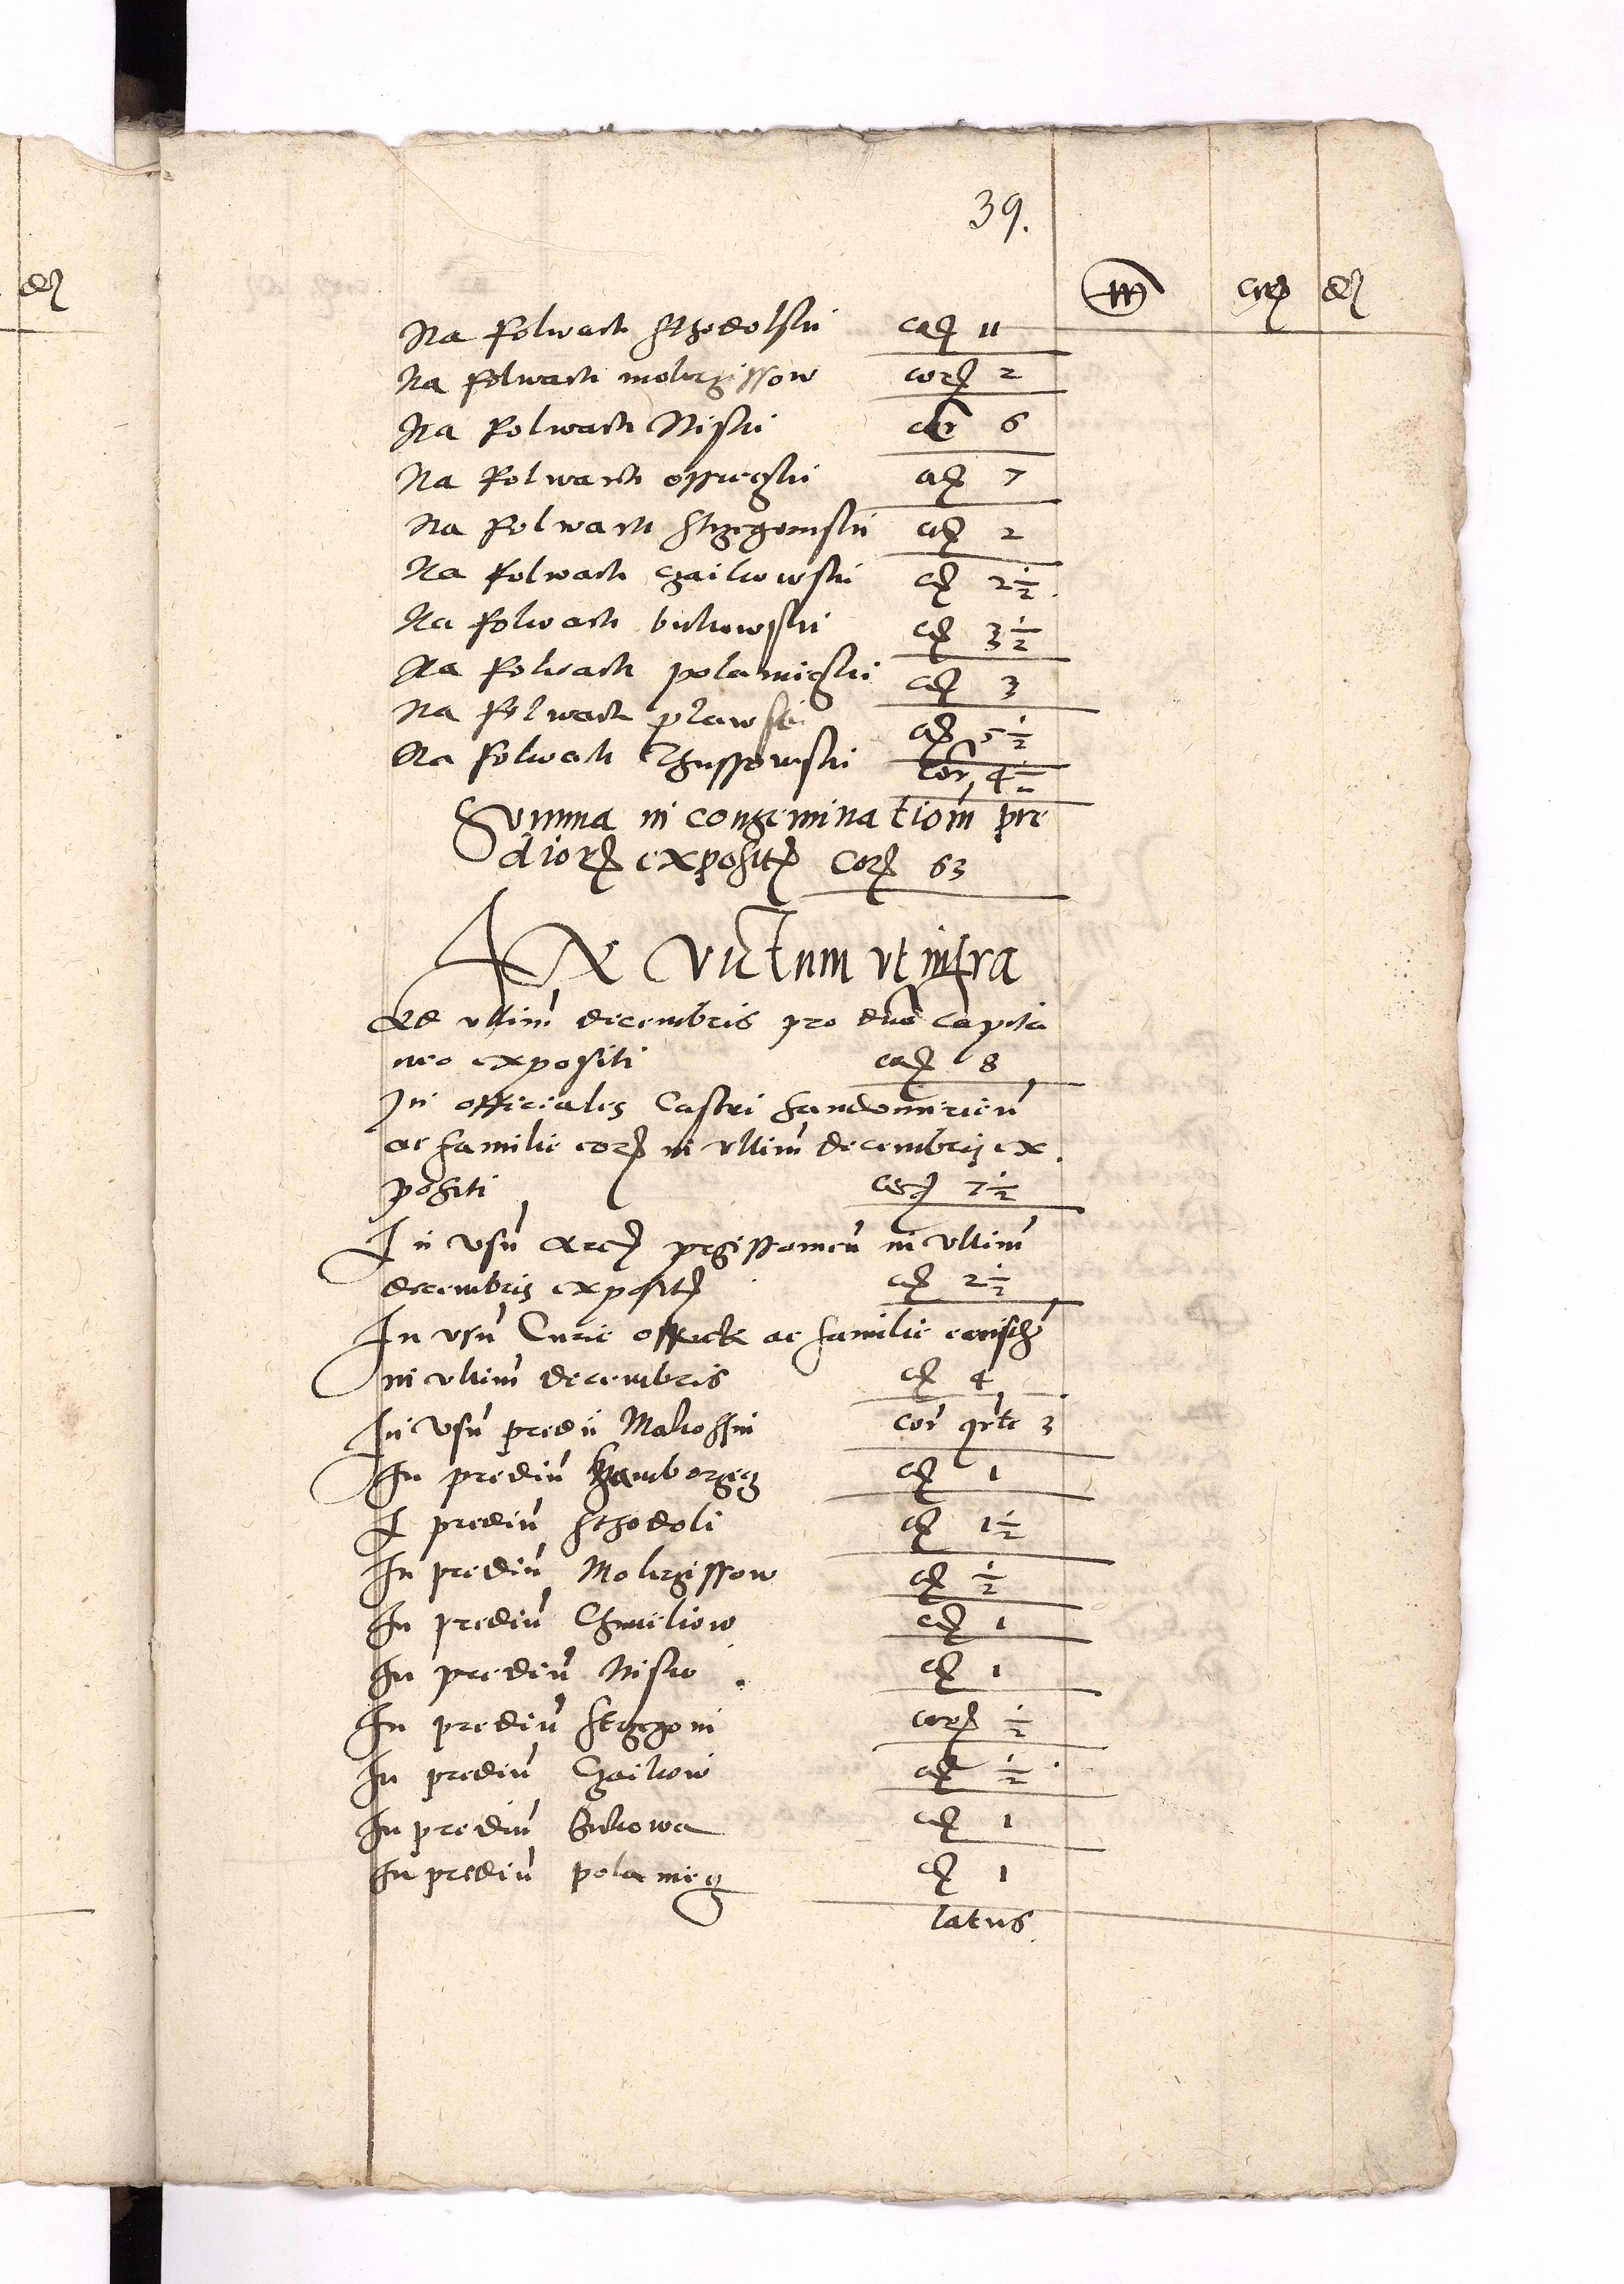 39.
m grꝭ dꝭ
dꝭ
Na folwark sthodolski corꝭ 11
Na folwark mokrzissow corꝭ 2
Na folwark Niski cor 6
Na folwark ossieczki corꝭ 7
Na folwark strzegomski corꝭ 2
Na folwark czaikowski corꝭ 2½
Na folwark bukowski corꝭ 3½
Na folwark polanieczki corꝭ 3
Na folwark plawski corꝭ 5½
Na folwark Thussowski cor 4½
Summa in congeminationem pre
diorꝭ expositꝭ corꝭ 63
Ad Victum vt infra
Ad vltim decembris pro dno Capita
neo expositi corꝭ 8
In officiales Castri sandomirien
ac familie eorꝭ in vltim decembris ex
positi corꝭ 7½
In vsu arcꝭ przissomen in vltim
decembris expositꝭ corꝭ 2½
In vsu Curie ossiek ac familie eiusdem
in vltim decembris corꝭ 4
In vsu predii Makossin cor qrte 3
In prediu Zamborzecz corꝭ 1
I prediu sthodoli corꝭ 1½
In prediu Mokrzissow corꝭ ½
In prediu Chmieliow corꝭ 1
In prediu Nisko corꝭ 1
In prediu strzegom corꝭ ½
In prediu Czaikow corꝭ ½
In prediu Bukowa corꝭ 1
In prediu polaniecz corꝭ 1
latus